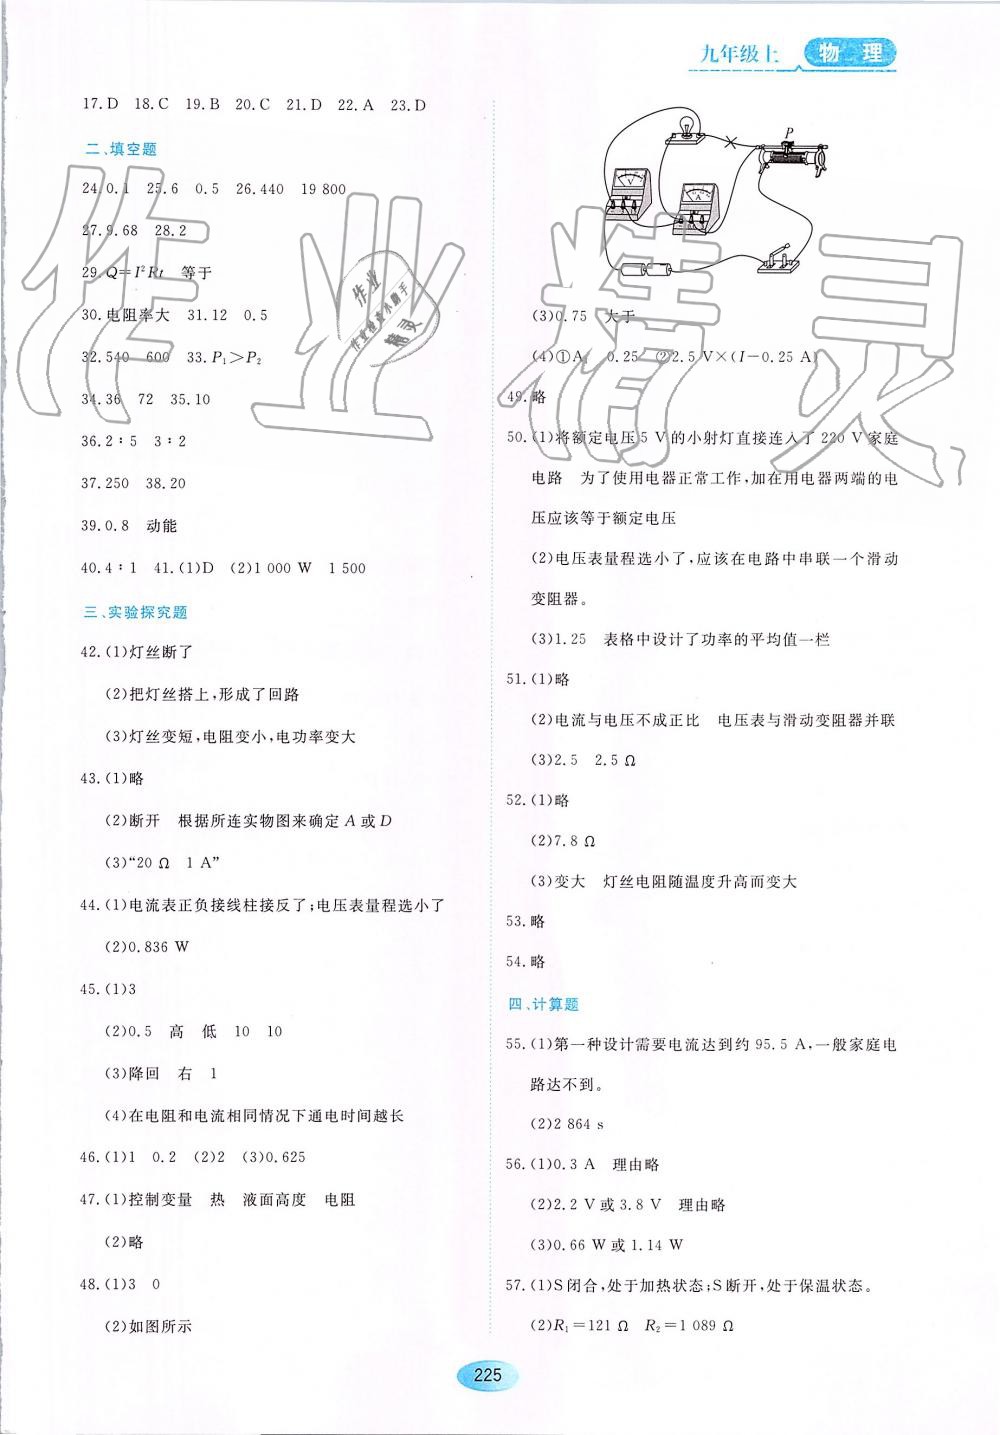 九年级上 物 理
17.D 18.C 19.B 20.C 21.D 22.A 23.D
二、填空题
24.0.1 25.6 0.5 26.440 19 800
27.9.68 28.2
29.Q=I²Rt 等于
30.电阻率大 31.12 0.5
32.540 600 33.P₁>P₂
34.36 72 35.10
36.2∶5 3∶2
37.250 38.20
39.0.8 动能
40.4∶1 41.(1)D (2)1 000 W 1 500
三、实验探究题
42.(1)灯丝断了
(2)把灯丝搭上,形成了回路
(3)灯丝变短,电阻变小,电功率变大
43.(1)略
(2)断开 根据所连实物图来确定 A 或 D
(3)“20 Ω 1 A”
44.(1)电流表正负接线柱接反了;电压表量程选小了
(2)0.836 W
45.(1)3
(2)0.5 高 低 10 10
(3)降回 右 1
(4)在电阻和电流相同情况下通电时间越长
46.(1)1 0.2 (2)2 (3)0.625
47.(1)控制变量 热 液面高度 电阻
(2)略
48.(1)3 0
(2)如图所示
P
V
A
(3)0.75 大于
(4)①A₁ 0.25 ②2.5 V×(I-0.25 A)
49.略
50.(1)将额定电压 5 V 的小射灯直接连入了 220 V 家庭
电路 为了使用电器正常工作,加在用电器两端的电
压应该等于额定电压
(2)电压表量程选小了,应该在电路中串联一个滑动
变阻器。
(3)1.25 表格中设计了功率的平均值一栏
51.(1)略
(2)电流与电压不成正比 电压表与滑动变阻器并联
(3)2.5 2.5 Ω
52.(1)略
(2)7.8 Ω
(3)变大 灯丝电阻随温度升高而变大
53.略
54.略
四、计算题
55.(1)第一种设计需要电流达到约 95.5 A,一般家庭电
路达不到。
(2)2 864 s
56.(1)0.3 A 理由略
(2)2.2 V 或 3.8 V 理由略
(3)0.66 W 或 1.14 W
57.(1)S 闭合,处于加热状态;S 断开,处于保温状态。
(2)R₁=121 Ω R₂=1 089 Ω
225
作业精灵
作业
作业检查小助手
精灵